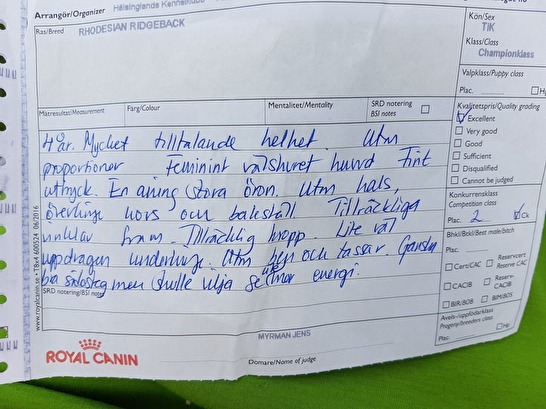 Arrangör/Organizer Hälsinglands Kennelklubb
Ras/Breed RHODESIAN RIDGEBACK
Kön/Sex
TIK
Klass/Class
Championklass
Valpklass/Puppy class
Plac.
Mätresultat/Measurement
Färg/Colour
Mentalitet/Mentality
SRD notering
BSI notes
Kvalitetspris/Quality grading
Excellent
Very good
Good
Sufficient
Disqualified
Cannot be judged
Konkurrensklass
Competition class
Plac. 2 Ck
Bhkl/Btkl/Best male/bitch
Plac.
Cert/CAC
Reservcert
Reserve CAC
CACIB
Reserv-
CACIB
BIR/BOB
BIM/BOS
Avels-/uppfödarklass
Progeny/breeders class
Plac. Hp
4 år. Mycket tilltalande helhet. Utm
proportioner Feminint välskuret huvud Fint
uttryck. En aning stora öron. Utm hals,
överlinje kors och bakställ. Tillräckliga
vinklar fram. Tillräcklig kropp Lite väl
uppdragen underlinje. Utm ben och tassar. Ganska
bra sidosteg men skulle vilja se lite mer energi.
SRD notering/BSI notes
www.royalcanin.se • T8x4 600524 06/2016
ROYAL CANIN
MYRMAN JENS
Domare/Name of judge